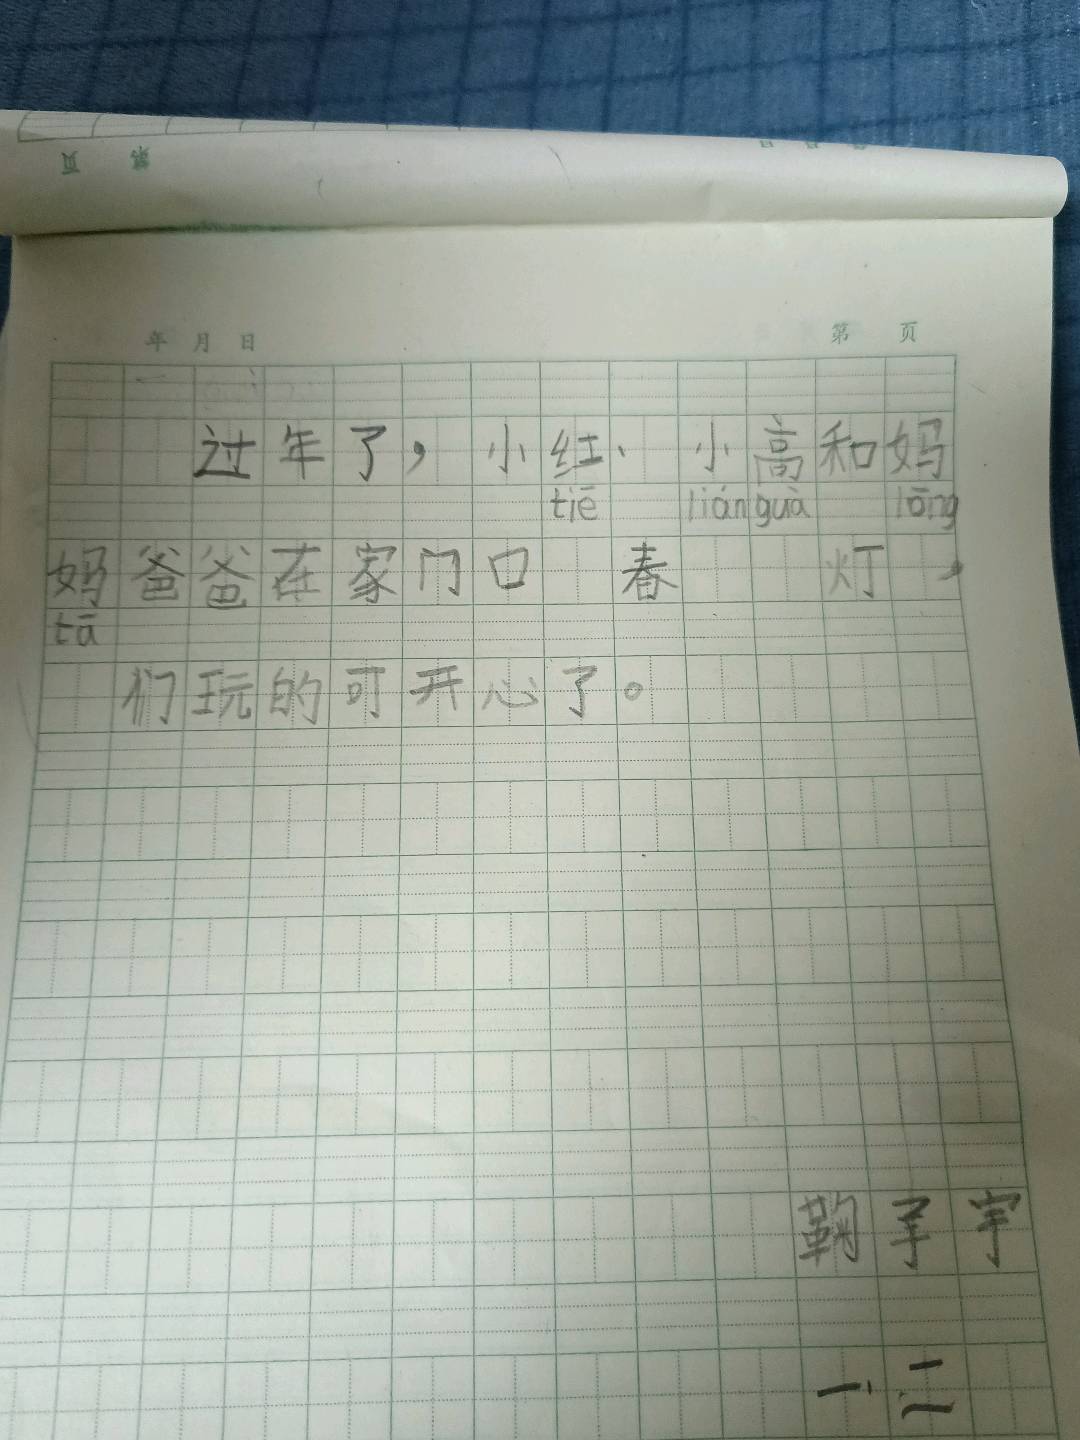 页 第
年 月 日 第 页
过年了，小红、小高和妈
tiē lián guà lōng
妈爸爸在家门口 春 灯，
tā
们玩的可开心了。
鞠 宇
一.二